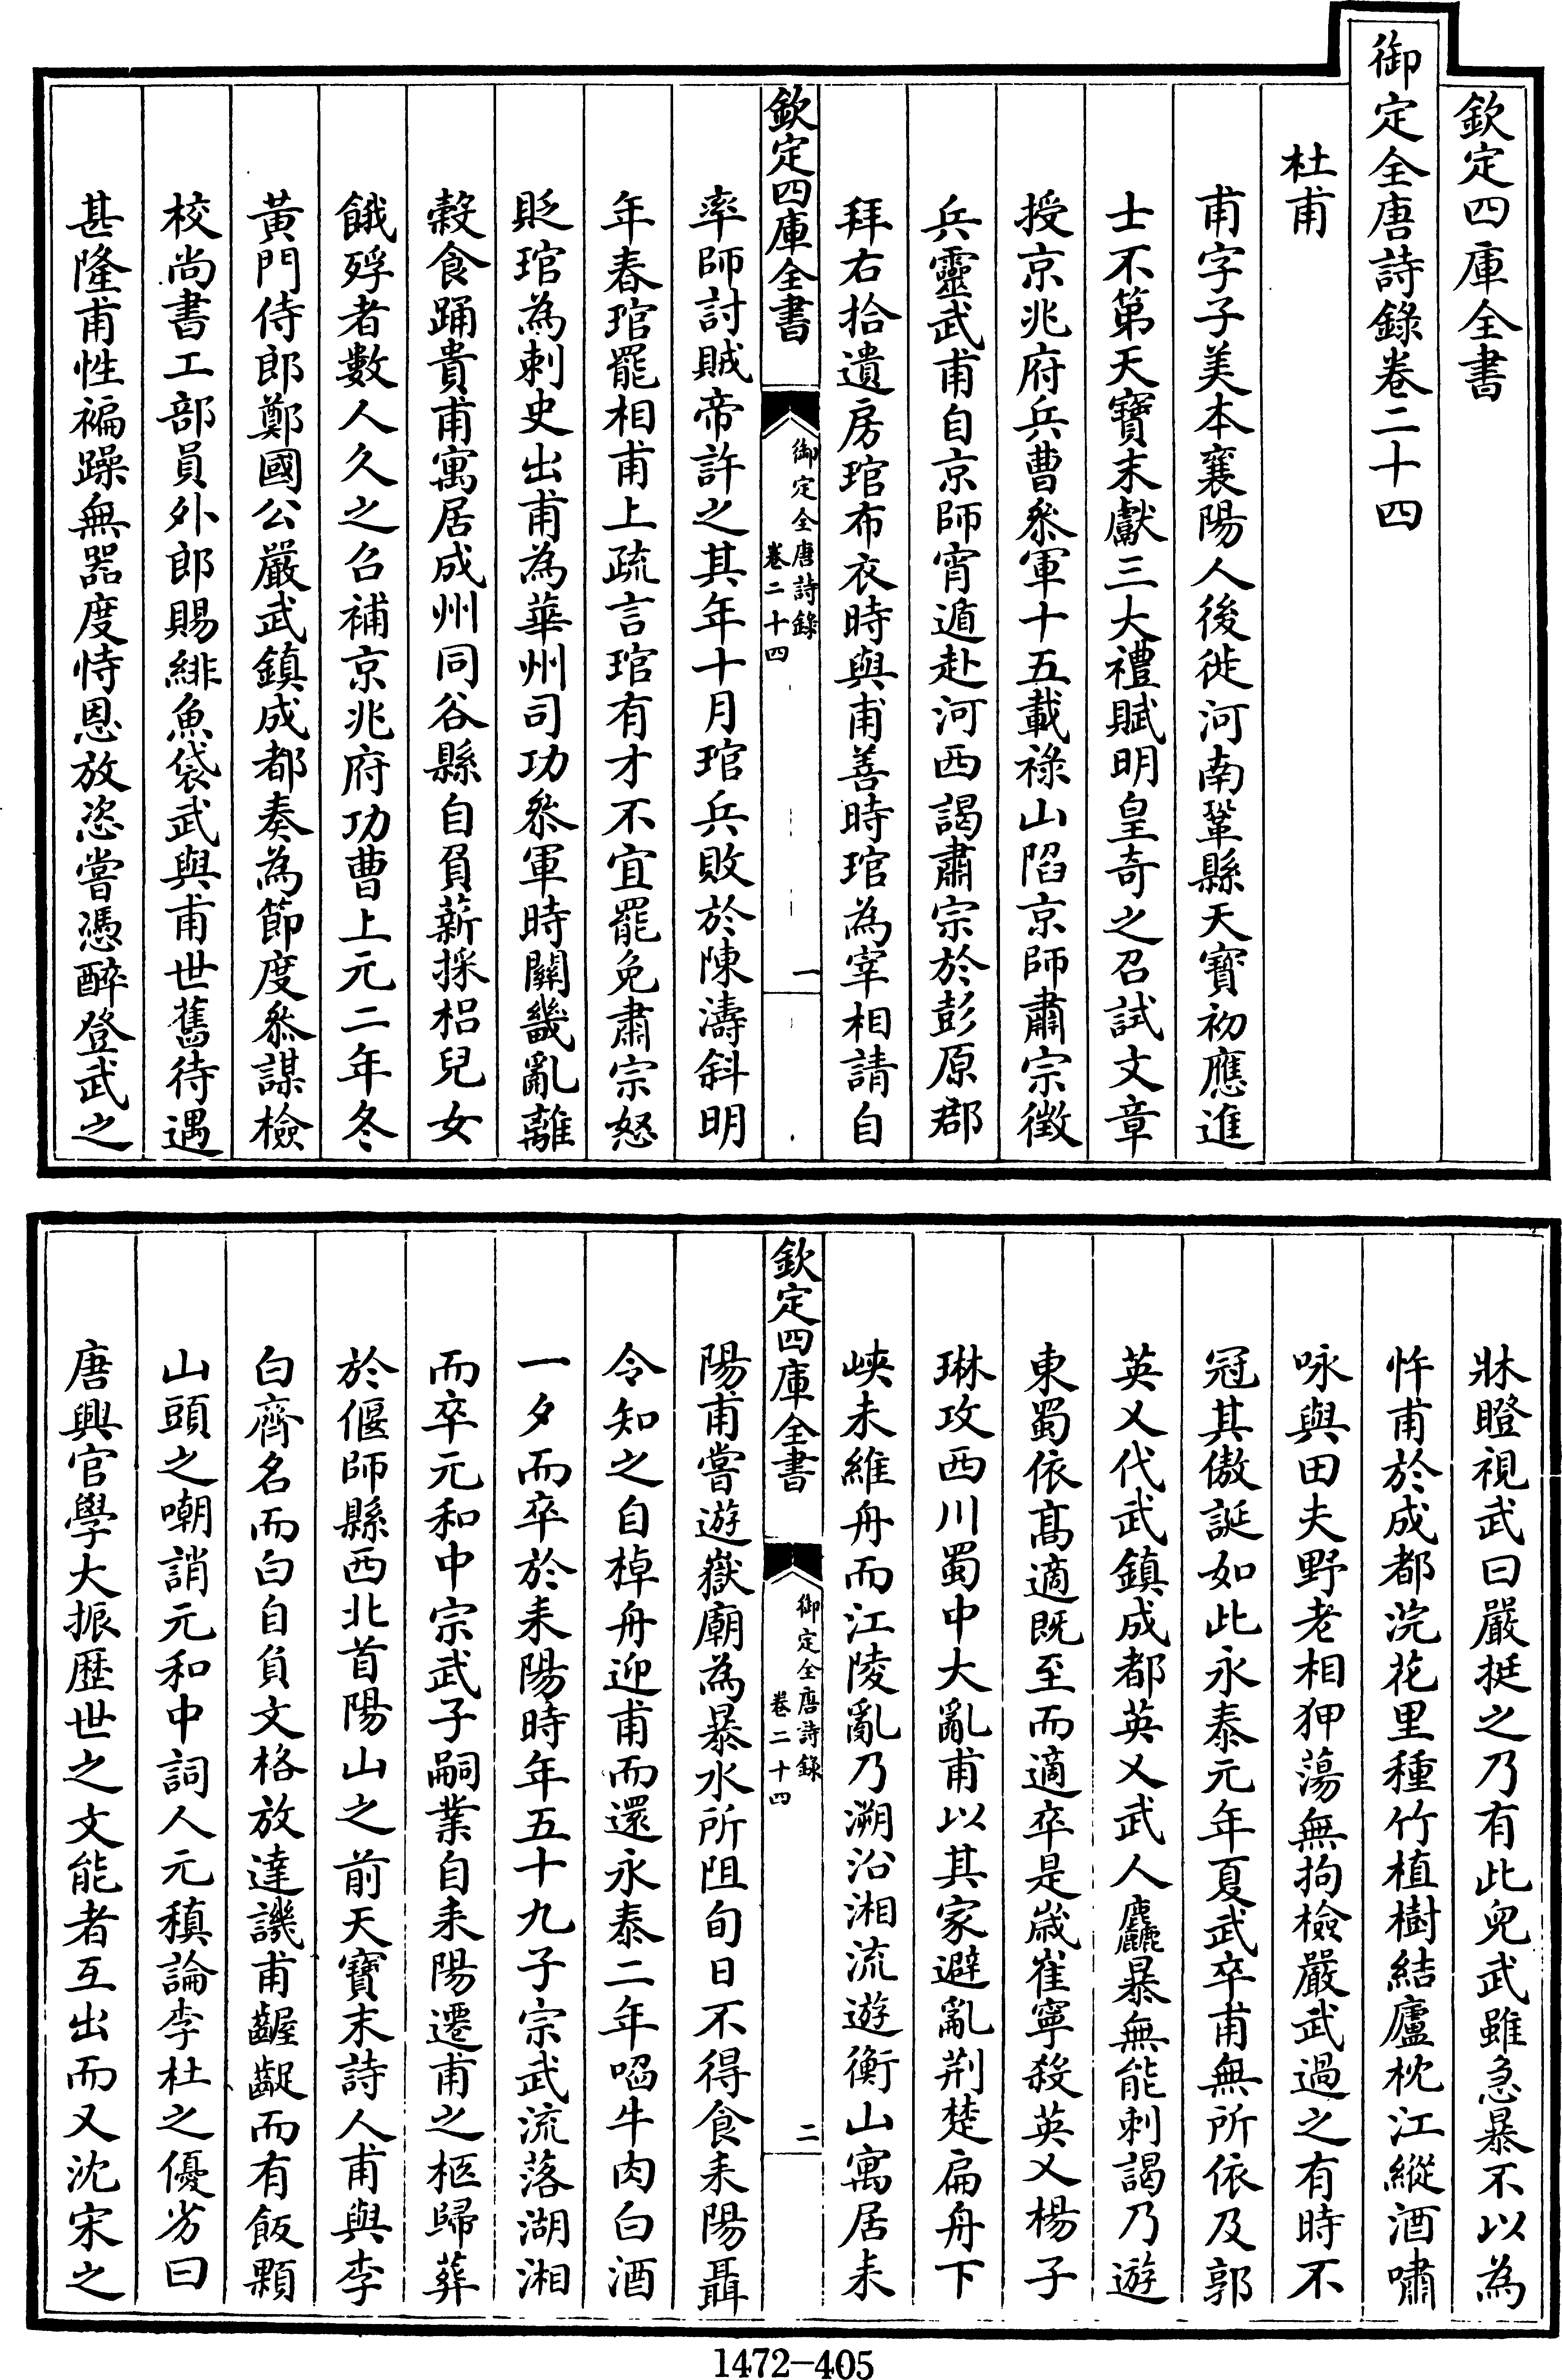 欽定四庫全書
御定全唐詩錄卷二十四
杜甫
甫字子美本襄陽人後徙河南鞏縣天寶初應進
士不第天寶末獻三大禮賦明皇奇之召試文章
授京兆府兵曹叅軍十五載祿山陷京師肅宗徵
兵靈武甫自京師宵遁赴河西謁肅宗於彭原郡
拜右拾遺房琯布衣時與甫善時琯為宰相請自
欽定四庫全書
御定全唐詩錄
卷二十四
一
率師討賊帝許之其年十月琯兵敗於陳濤斜明
年春琯罷相甫上疏言琯有才不宜罷免肅宗怒
貶琯為刺史出甫為華州司功叅軍時關畿亂離
穀食踊貴甫寓居成州同谷縣自負薪採梠兒女
餓殍者數人久之召補京兆府功曹上元二年冬
黃門侍郎鄭國公嚴武鎮成都奏為節度叅謀檢
校尚書工部員外郎賜緋魚袋武與甫世舊待遇
甚隆甫性褊躁無器度恃恩放恣嘗憑醉登武之
牀瞪視武曰嚴挺之乃有此兒武雖急暴不以為
忤甫於成都浣花里種竹植樹結廬枕江縱酒嘯
咏與田夫野老相狎蕩無拘檢嚴武過之有時不
冠其傲誕如此永泰元年夏武卒甫無所依及郭
英乂代武鎮成都英乂武人麤暴無能刺謁乃遊
東蜀依高適既至而適卒是歲崔寧殺英乂楊子
琳攻西川蜀中大亂甫以其家避亂荆楚扁舟下
峽未維舟而江陵亂乃溯沿湘流遊衡山寓居耒
欽定四庫全書
御定全唐詩錄
卷二十四
二
陽甫嘗遊嶽廟為暴水所阻旬日不得食耒陽聶
令知之自棹舟迎甫而還永泰二年啗牛肉白酒
一夕而卒於耒陽時年五十九子宗武流落湖湘
而卒元和中宗武子嗣業自耒陽遷甫之柩歸葬
於偃師縣西北首陽山之前天寶末詩人甫與李
白齊名而白自負文格放達譏甫齷齪而有飯顆
山頭之嘲誚元和中詞人元稹論李杜之優劣曰
唐興官學大振歷世之文能者互出而又沈宋之
1472-405